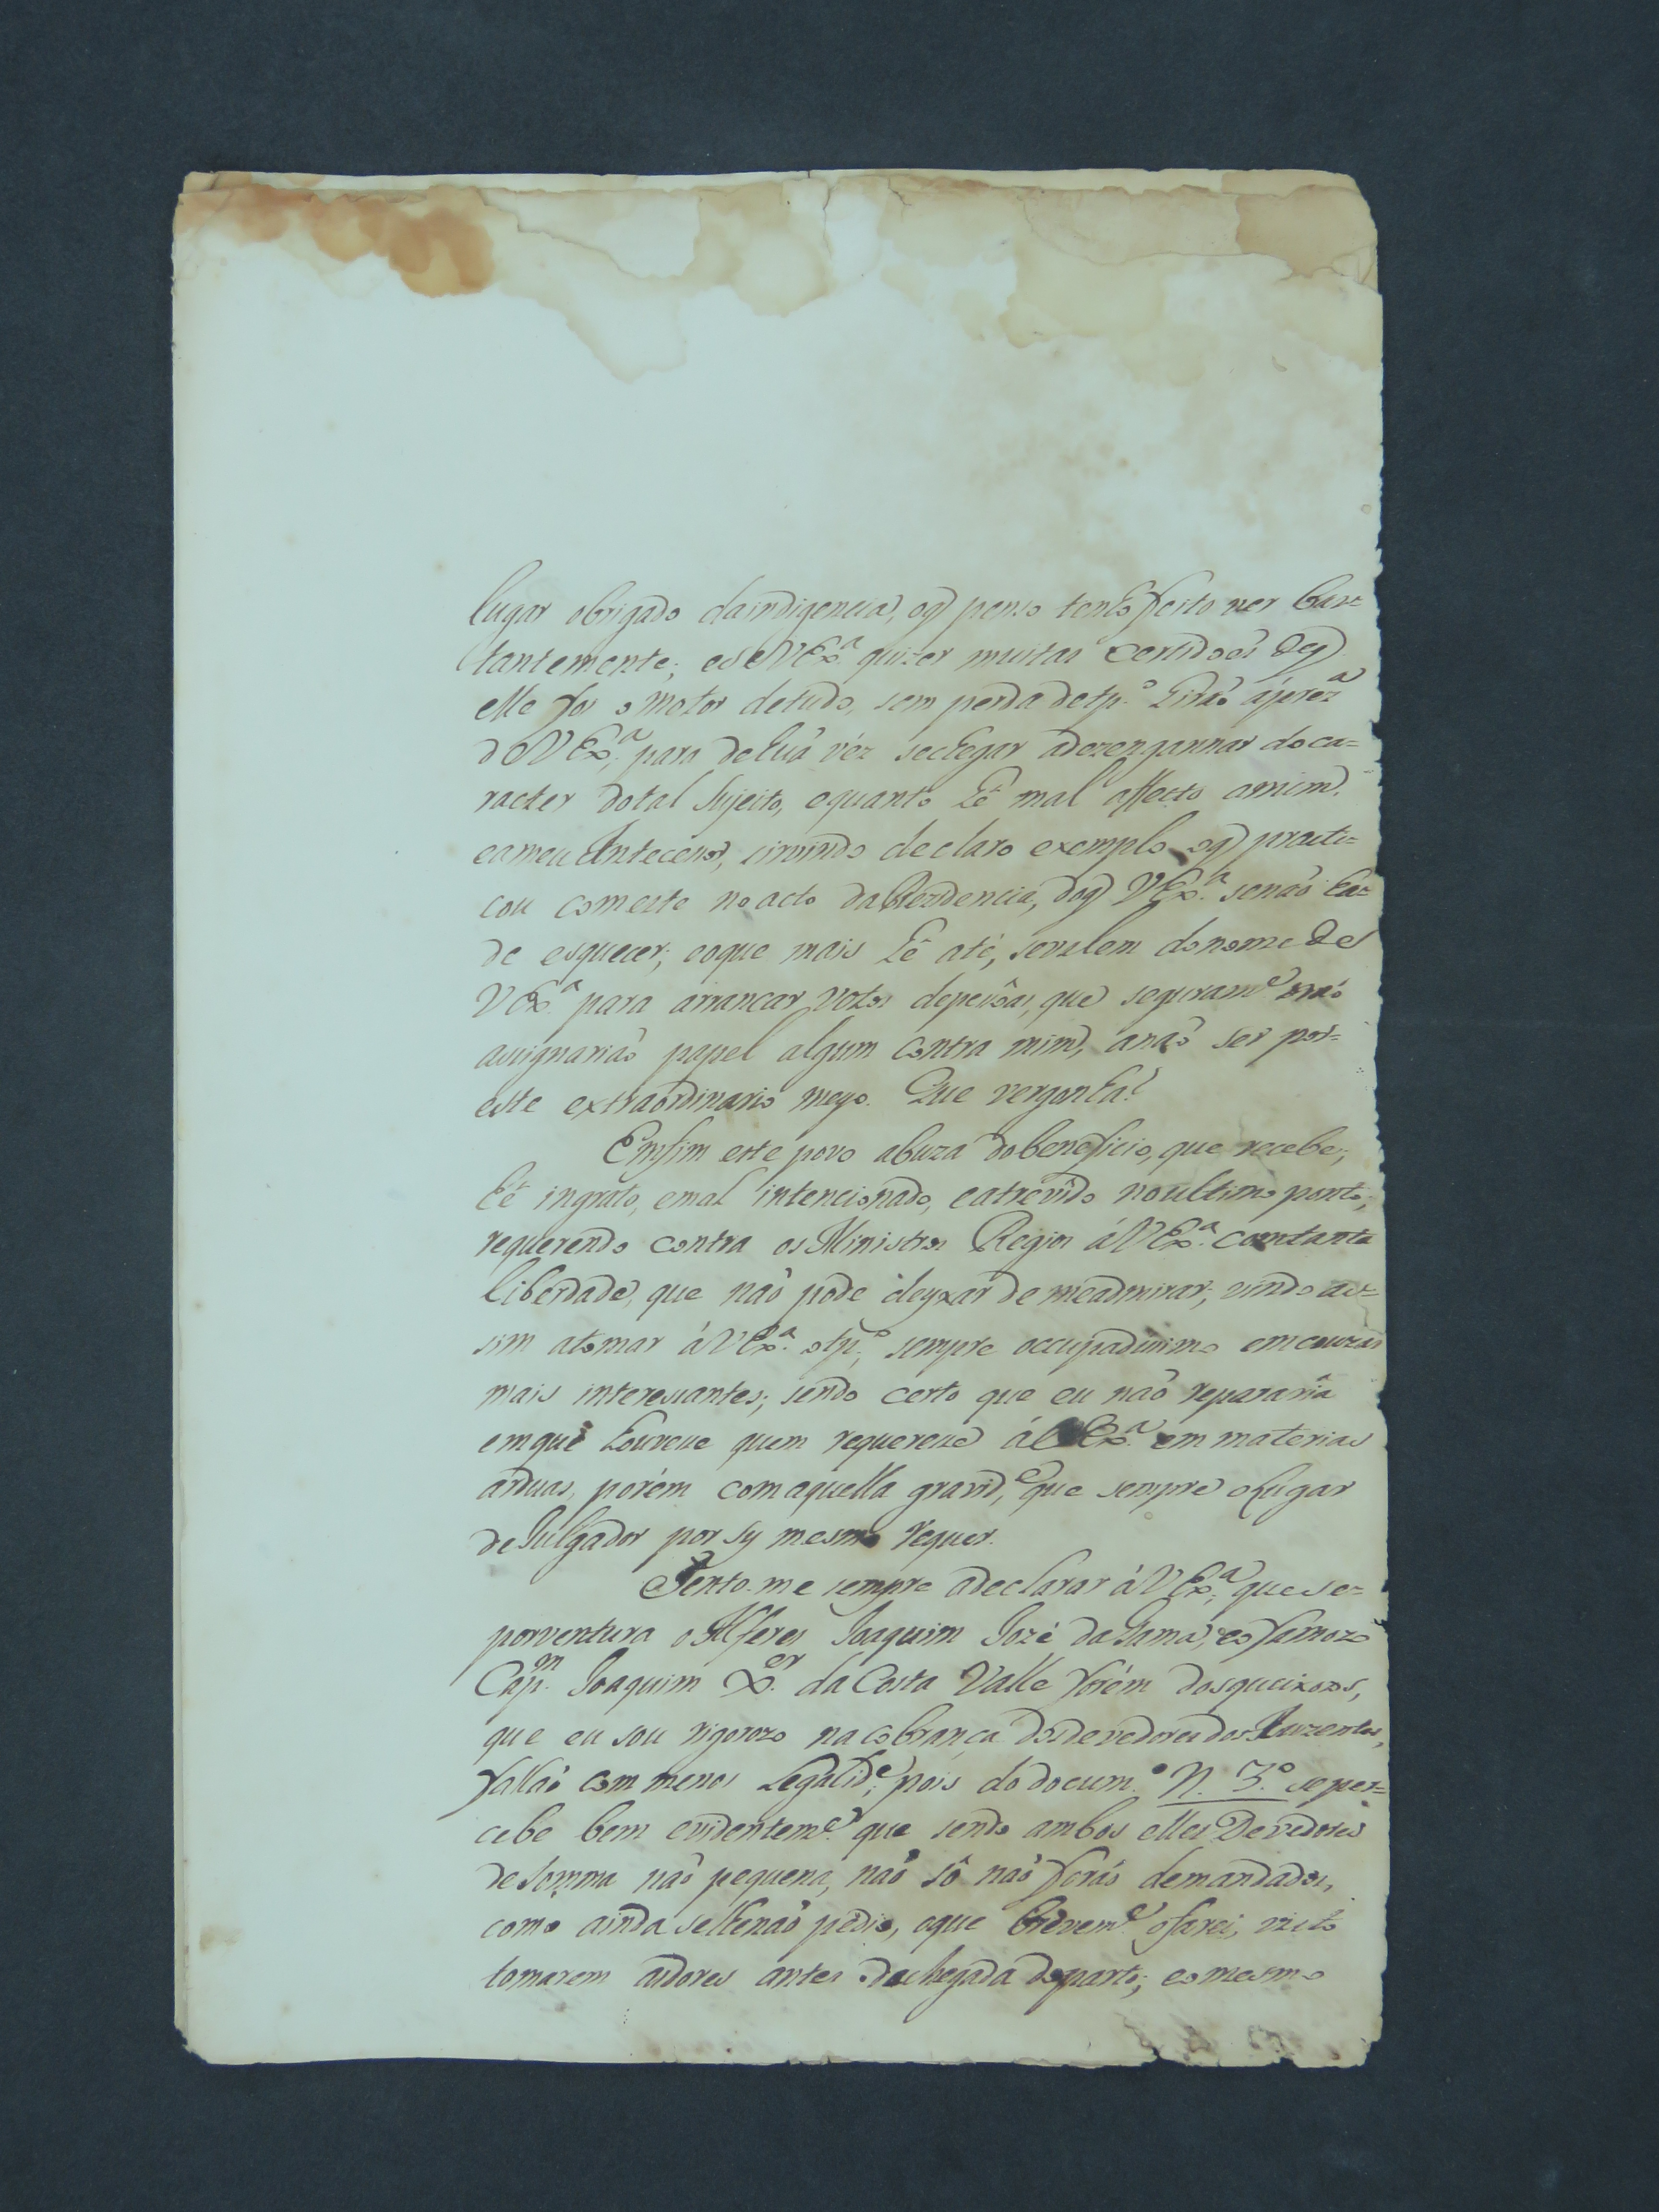 lugar obrigado da indigencia, oq̃ penso tenho feito ver bas=
tantemente; e se VEx.ª quizer muitas Certidoẽs deq̃
elle foi o motor de tudo, sem perda de tp.º hirão á prez.ª
de VEx.ª, para de huã véz se chegar a dezengannar do ca=
racter do tal Sujeito, e quanto hé mal affecto a mim,
e a meu Antecessor, sirvindo de claro exemplo oq̃ practi=
cou com este no acto da Rezidencia, doq̃ VEx.ª se não ha
de esquecer; e o que mais hé até, se valem do nome de
VEx.ª para arrancar votos de pessôas, que seguram.e não
assignarião papel algum contra mim, a não ser por=
este extraordinario meyo. Que vergonha!
Emfim este povo abuza do beneficio, que recebe;
hé ingrato, e mal intencionado, e atrevido no ultimo ponto;
requerendo contra os Ministros Regios á VEx.ª com tanta
liberdade, que não póde deyxar de me admirar; vindo as=
sim a tomar á VEx.ª o tp.º, sempre occupadissimo em couzas
mais interessantes; sendo certo que eu não repararia
em que houvesse quem requeresse á VEx.ª em materias
arduas, porém com aquella gravid.e, que sempre o Lugar
de Julgador por sy mesmo requer.
Tento-me sempre a declarar á VEx.ª, que se=
porventura o Alferes Joaquim Jozé da Gama, e o famozo
Cap.m Joaquim X.er da Costa Valle forém dos queixozos,
que eu sou rigorozo na cobrança dos devedores dos Auzentes,
fallão com menos Legalid.e; pois do docum.º N. 3.º se per=
cebe bem evidentem.e que sendo ambos elles Devedores
de Somma não pequena, não só não forão demandados,
como ainda se lhe não pedio, o que brevem.e o farei, visto
tomarem as dores antes da chegada do parto; e o mesmo